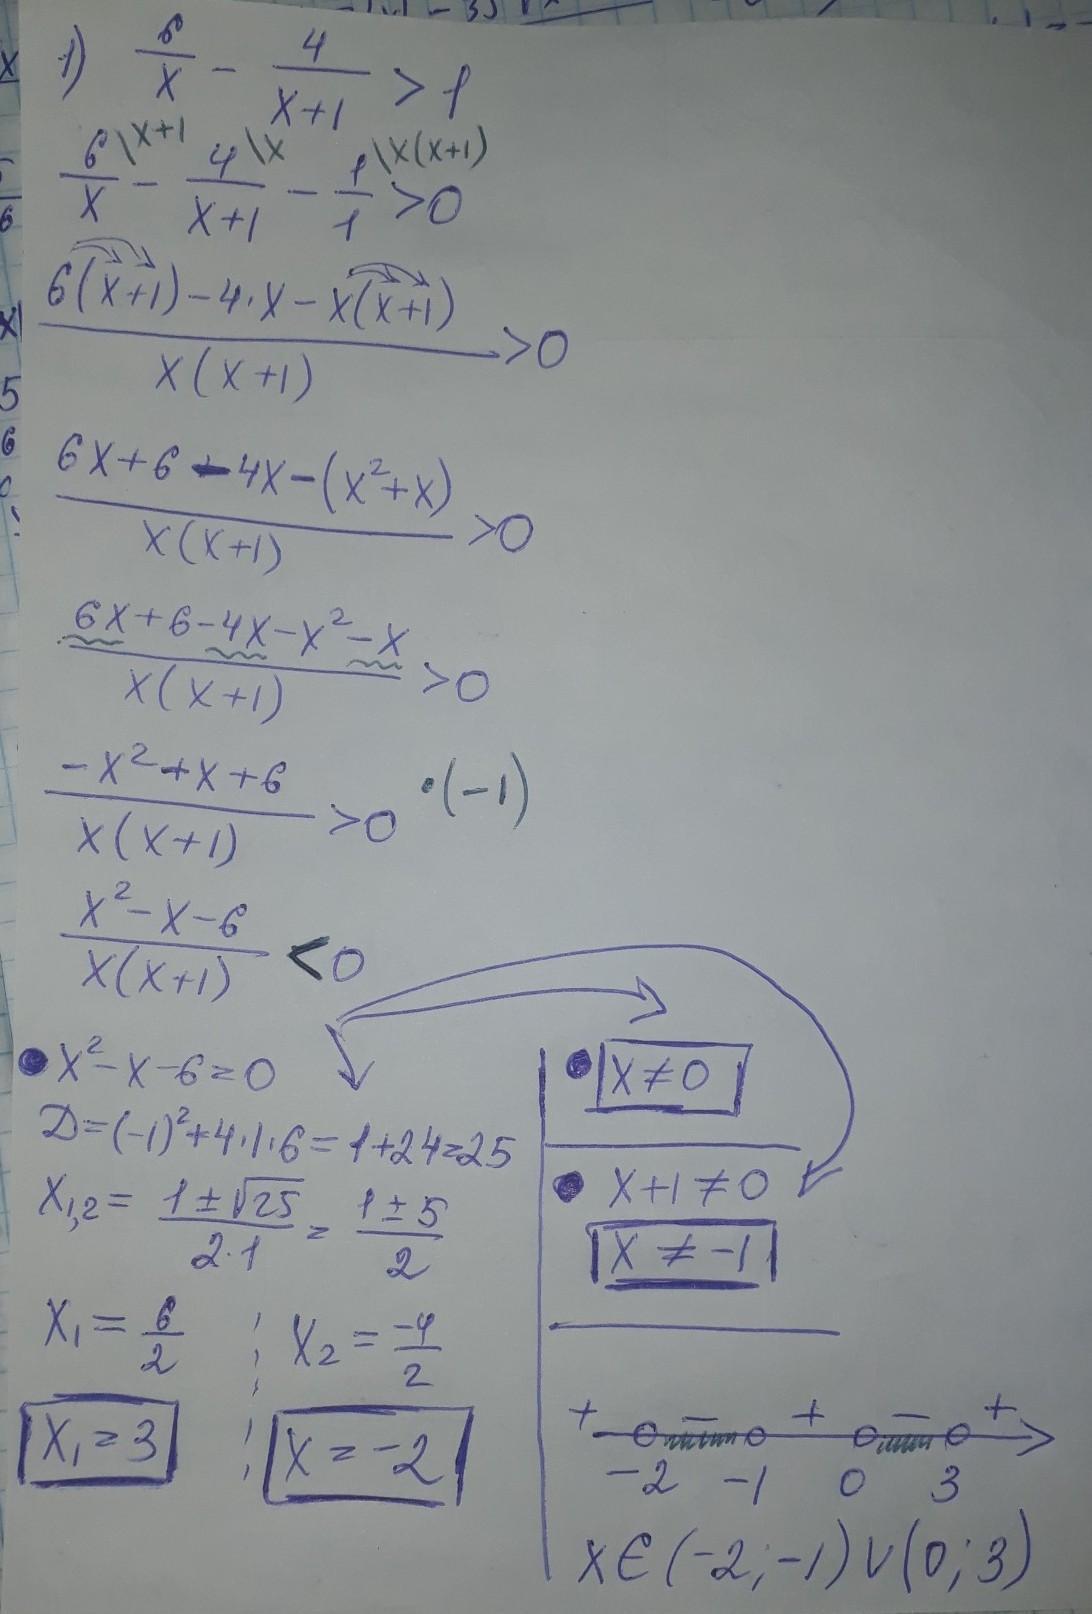 1) 6/x - 4/(x+1) > 1
6/x \x+1 - 4/(x+1) \x - 1/1 \x(x+1) > 0
(6(x+1) - 4·x - x(x+1))/(x(x+1)) > 0
(6x+6-4x-(x²+x))/(x(x+1)) > 0
(6x+6-4x-x²-x)/(x(x+1)) > 0
(-x²+x+6)/(x(x+1)) > 0 ·(-1)
(x²-x-6)/(x(x+1)) < 0
• x²-x-6=0
D=(-1)²+4·1·6=1+24=25
x₁,₂ = (1±√25)/(2·1) = (1±5)/2
x₁ = 6/2 ; x₂ = -4/2
x₁ = 3 ; x = -2
• x≠0
• x+1≠0
x ≠ -1
+ - + - +
-2 -1 0 3
x∈(-2;-1)∨(0;3)